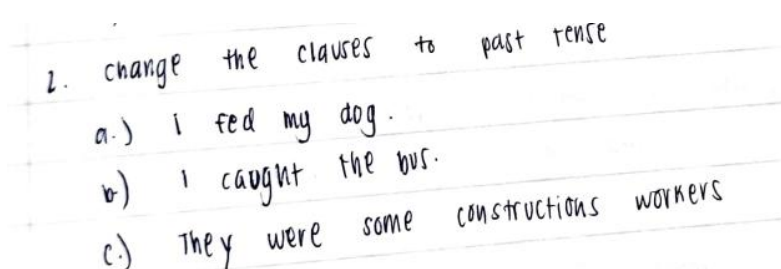 2. change the clauses to past tense
a.) i fed my dog.
b) i caught the bus.
c.) They were some constructions workers